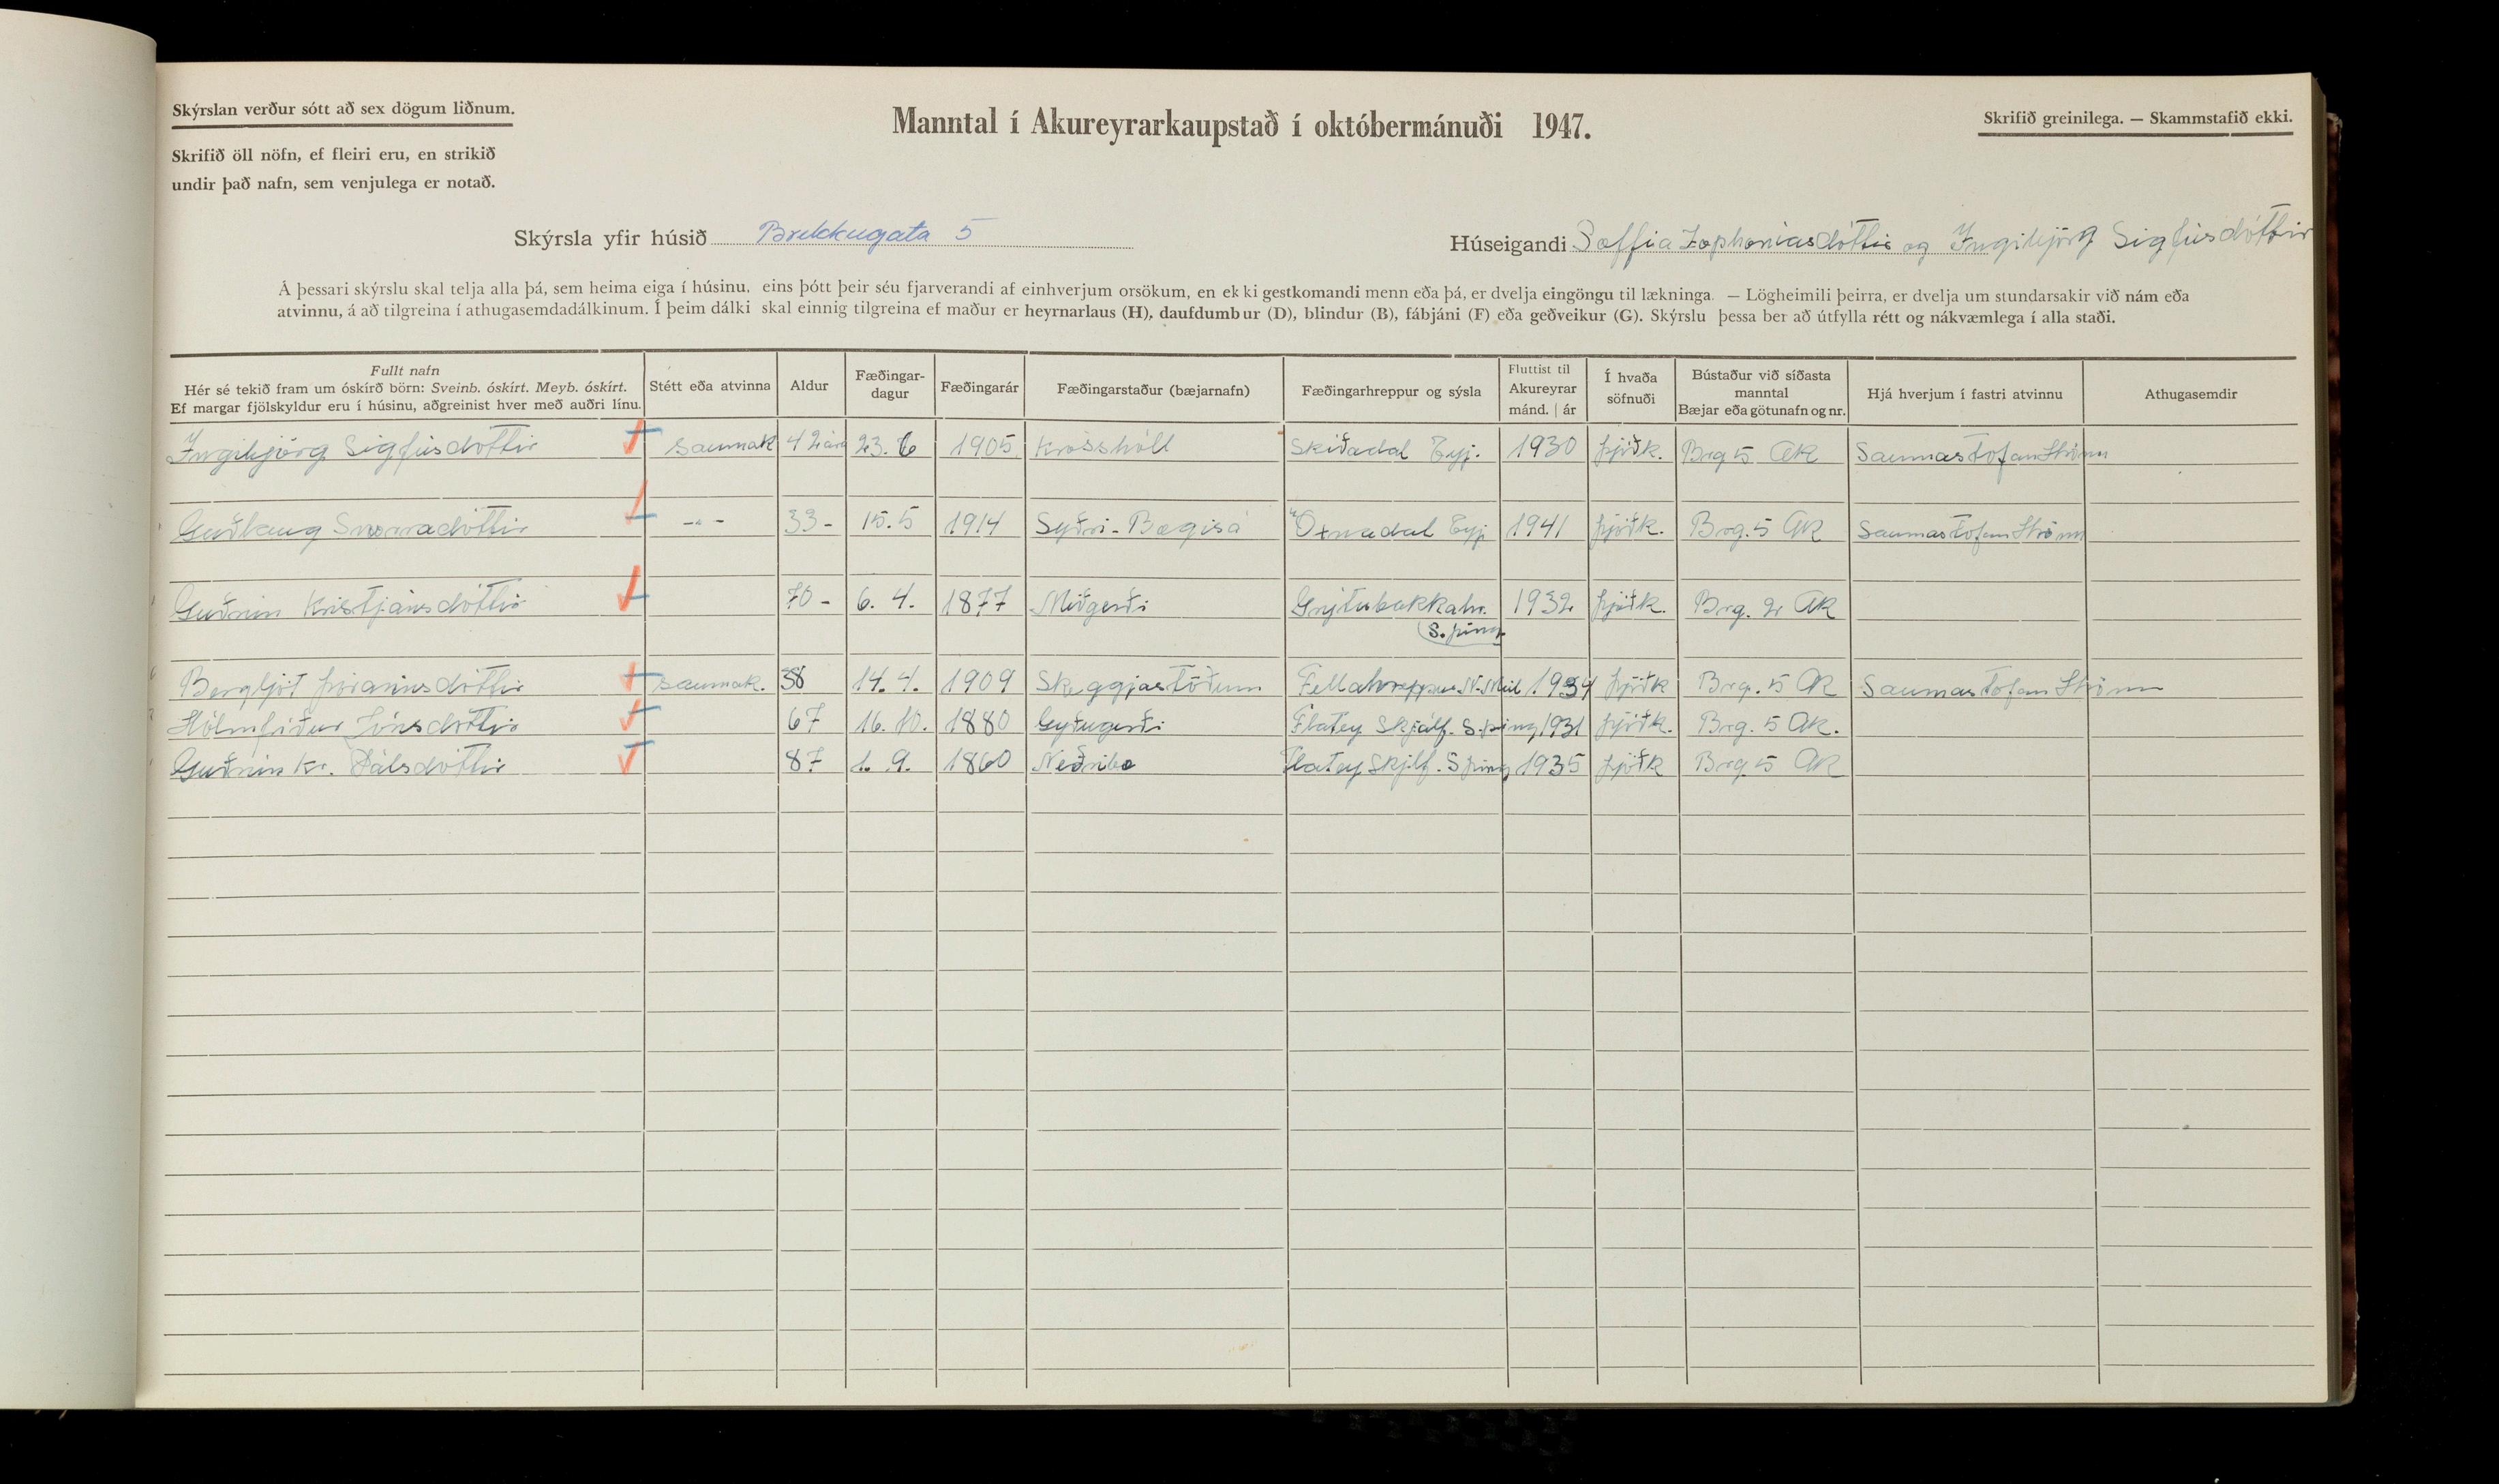 Skýrslan verður sótt að sex dögum liðnum.
Manntal í Akureyrarkaupstað í októbermánuði 1947.
Skrifið greinilega. — Skammstafið ekki.
Skrifið öll nöfn, ef fleiri eru, en strikið
undir það nafn, sem venjulega er notað.
Skýrsla yfir húsið Brekkugata 5
Húseigandi Soffia Zophoniasdóttir og Ingibjörg Sigfúsdóttir
Á þessari skýrslu skal telja alla þá, sem heima eiga í húsinu, eins þótt þeir séu fjarverandi af einhverjum orsökum, en ekki gestkomandi menn eða þá, er dvelja eingöngu til lækninga. — Lögheimili þeirra, er dvelja um stundarsakir við nám eða
atvinnu, á að tilgreina í athugasemdadálkinum. Í þeim dálki skal einnig tilgreina ef maður er heyrnarlaus (H), daufdumbur (D), blindur (B), fábjáni (F) eða geðveikur (G). Skýrslu þessa ber að útfylla rétt og nákvæmlega í alla staði.
Fullt nafn
Hér sé tekið fram um óskírð börn: Sveinb. óskírt. Meyb. óskírt.
Ef margar fjölskyldur eru í húsinu, aðgreinist hver með auðri línu.
Stétt eða atvinna
Aldur
Fæðingar-
dagur
Fæðingarár
Fæðingarstaður (bæjarnafn)
Fæðingarhreppur og sýsla
Fluttist til
Akureyrar
mánd. | ár
Í hvaða
söfnuði
Bústaður við síðasta
manntal
Bæjar eða götunafn og nr.
Hjá hverjum í fastri atvinnu
Athugasemdir
Ingibjörg Sigfúsdóttir saumak 42 ára 23. 6 1905 Krosshóll Skíðadal Eyj. 1930 þjóðk. Brg 5 Ak Saumastofan
Guðlaug Snorradóttir -"- 33 - 15. 5 1914 Syðri-Bægisá Öxnadal Eyj 1941 þjóðk. Brg. 5 Ak Saumastofan
Guðrún Kristjánsdóttir 70 - 6. 4. 1877 Miðgerði Grýtubakkahr. 1932 þjóðk. Brg. 2 Ak
S. þing
Bergljót Þórarinsdóttir saumak. 38 14. 4. 1909 Skeggjastöðum Fellahreppur N. Múl 1934 þjóðk Brg. 5 Ak Saumastofan
Hólmfríður Jónsdóttir 67 16. 10. 1880 Gyðugerði Flatey Skjálf. S. þing 1931 þjóðk. Brg. 5 Ak.
Guðrún Kr. Pálsdóttir 87 1. 9. 1860 Neðribæ Flatey Skjlf. S þing 1935 þjóðk Brg 5 Ak